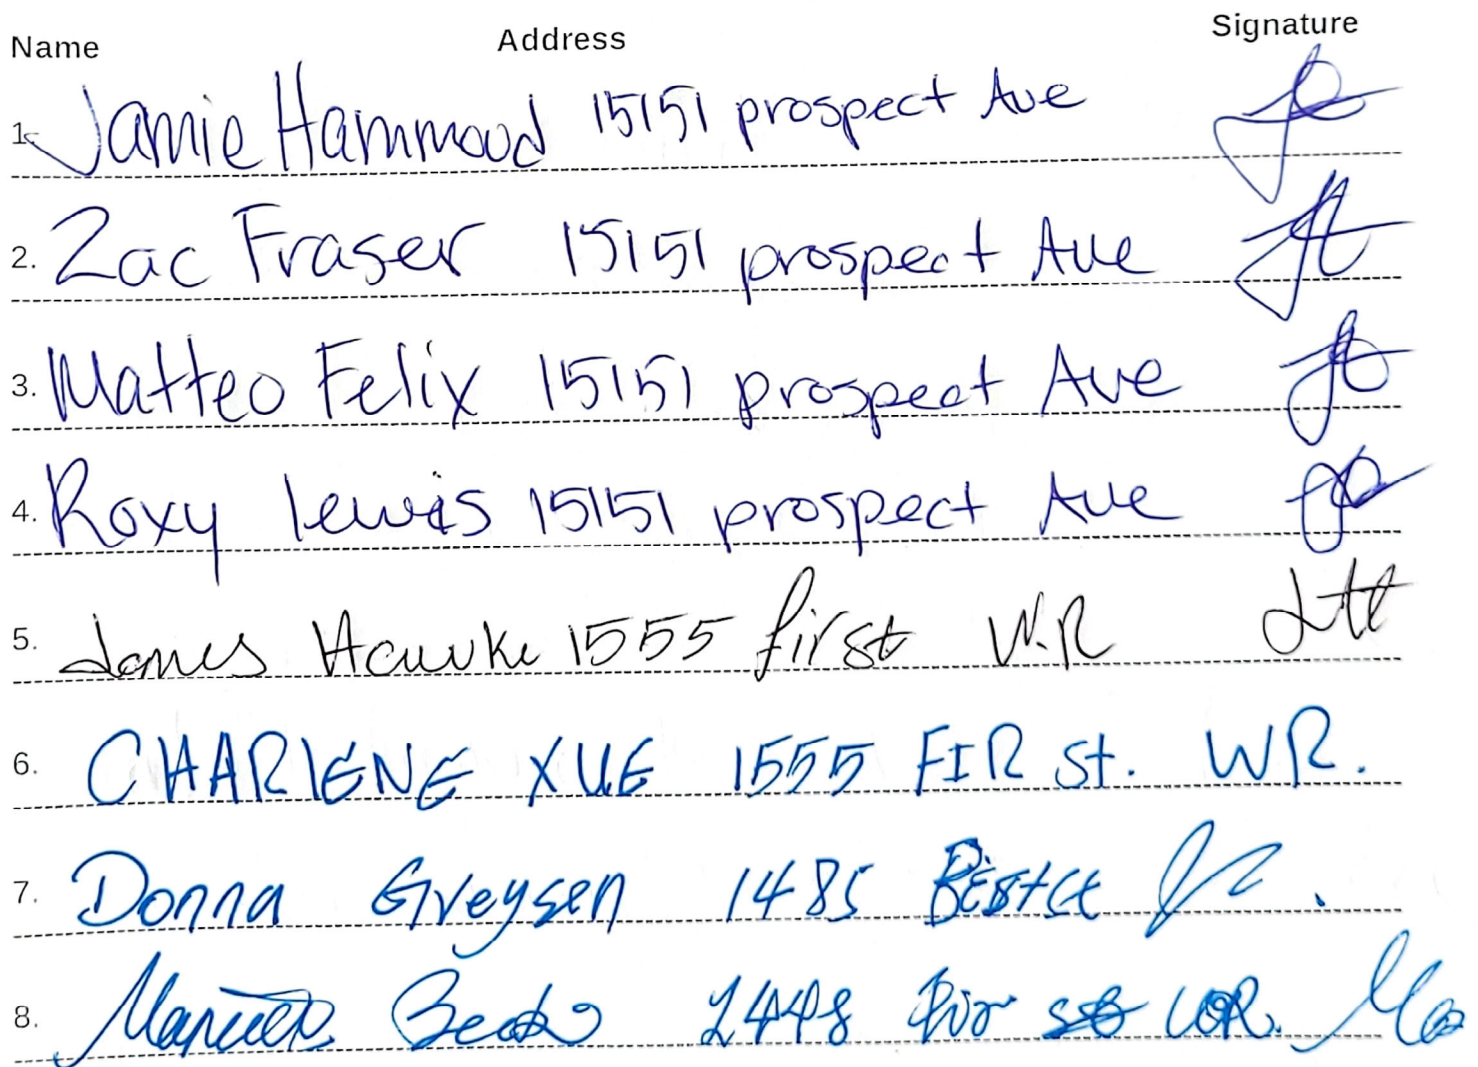 Name Address Signature
1. Jamie Hammoud 15151 prospect Ave
2. Zac Fraser 15151 prospect Ave
3. Matteo Felix 15151 prospect Ave
4. Roxy lewis 15151 prospect Ave
5. James Hawke 1555 first W.R
6. CHARlENE XUE 1555 FIR St. WR.
7. Donna Greysen 1485
8. 2448 Fir st WR.